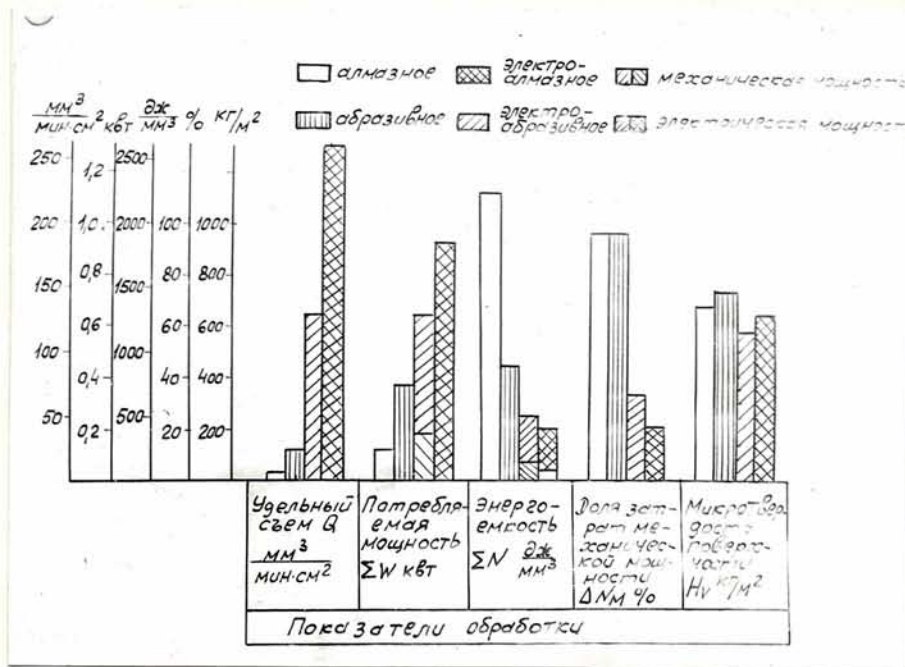 алмазное
электро-
алмазное
механическая мощность
абразивное
электро-
абразивное
электрическая мощност
мм³
мин·см²
квт
дж
мм³
%
кг/м²
250
200
150
100
50
1,2
1,0
0,8
0,6
0,4
0,2
2500
2000
1500
1000
500
100
80
60
40
20
1000
800
600
400
200
Удельный
съем Q
мм³
мин·см²
Потребля-
емая
мощность
ΣW квт
Энерго-
емкость
ΣN дж
мм³
Доля зат-
рат ме-
ханичес-
кой мощ-
ности
ΔNм %
Микротвер
дость
поверх-
ности
Hv кг/м²
Показатели обработки